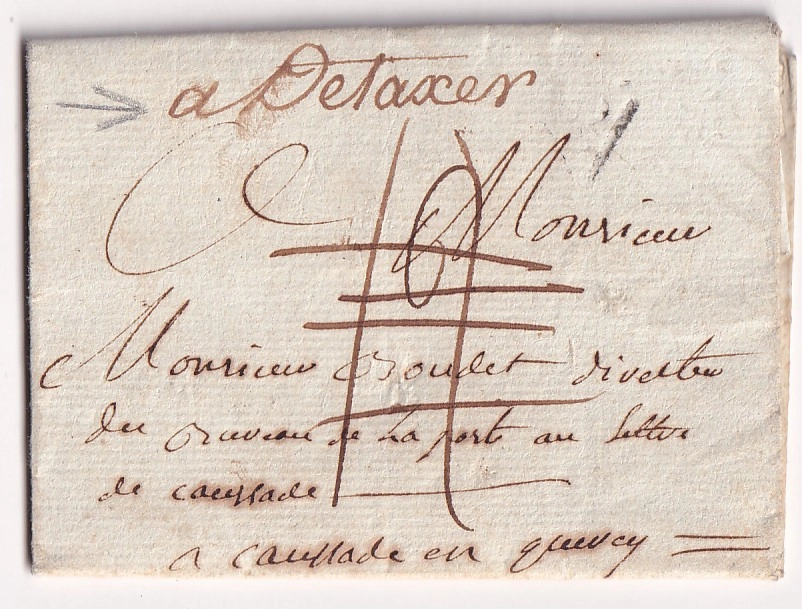 a Detaxer
a Monsieur
Monsieur Boudet directeu
du Bureau de la poste au lettre
de caussade
a caussade en quercy